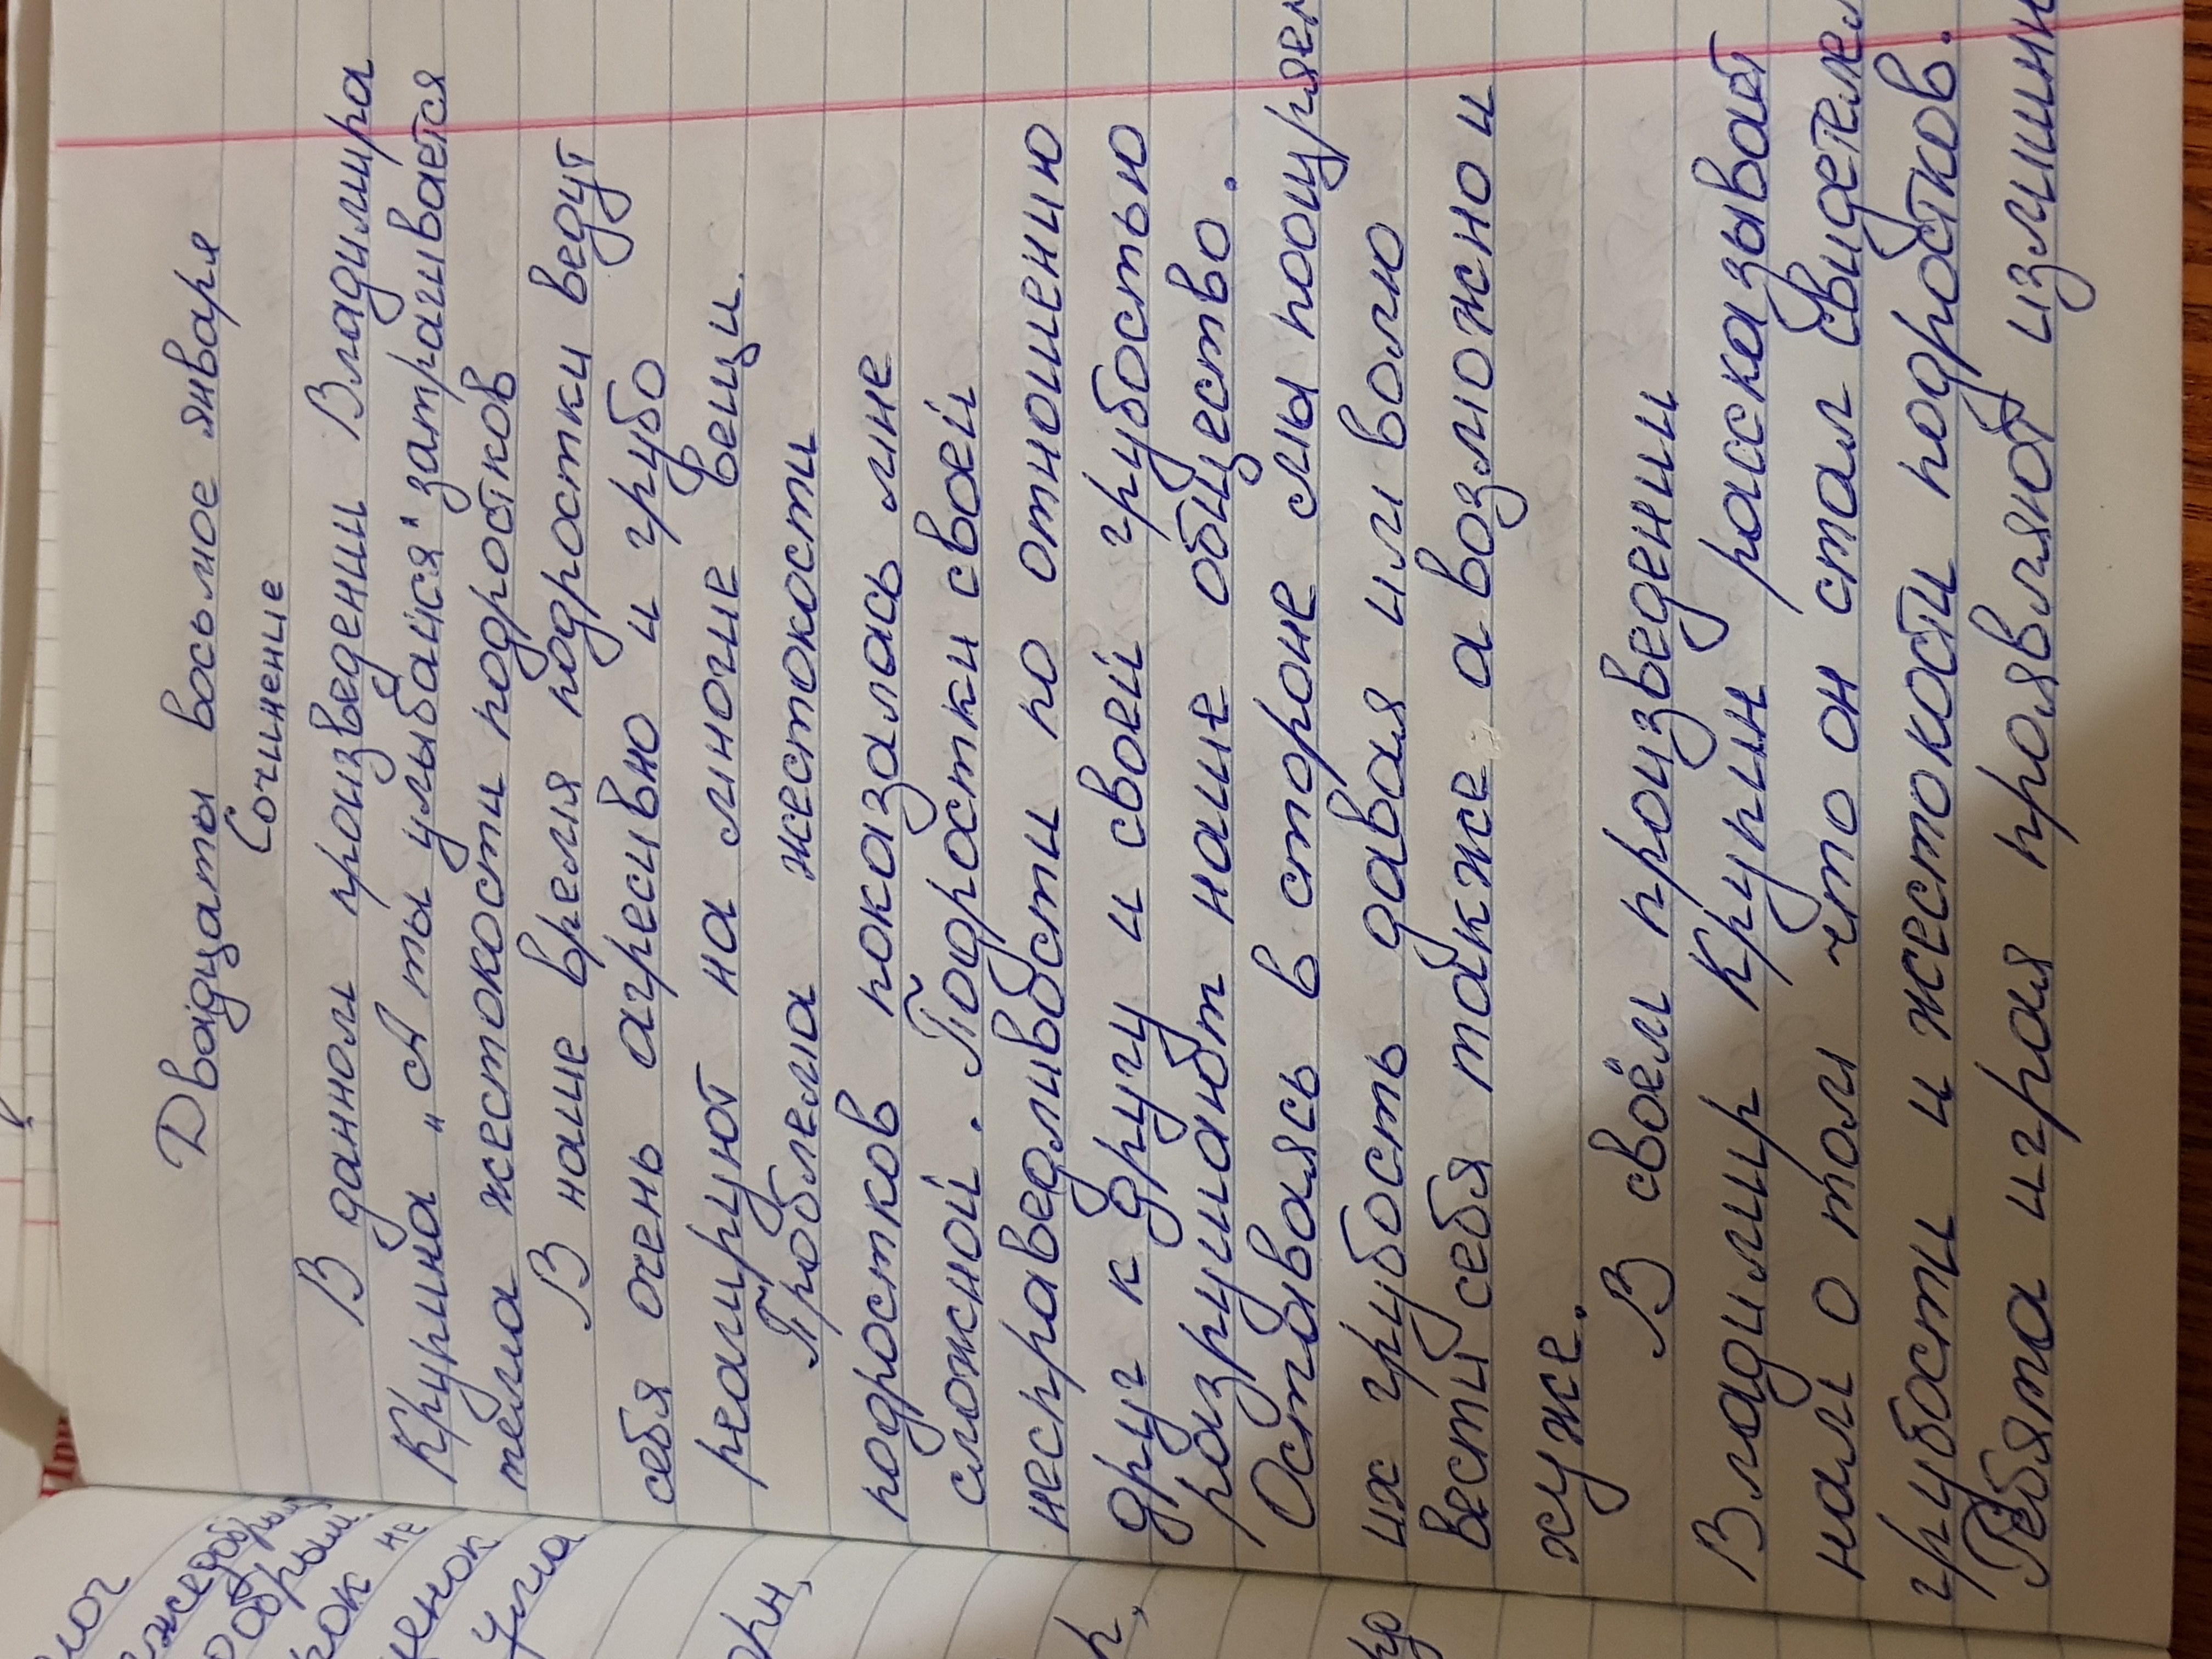 Двацаты восьмое января
Сочинение
В данном произведении Владимира
Крупина „А ты улыбайся" затрагивается
тема жестокости подростков
В наше время подростки ведут
себя очень агресивно и грубо
реагируют на многие вещи.
Проблема жестокости
подростков показалась мне
сложной. Подростки своей
несправедливости по отношению
друг к другу и своей грубостью
разрушают наше общество.
Оставаясь в стороне мы поощряем
их грубость давая им волю
вести себя также а возможно и
хуже.
В своём произведении
Владимир Крупин рассказывает
нам о том что он стал свидетелем
грубости и жестокости подростков.
Ребята играя проявляют излишн
лог
рок не
щенок